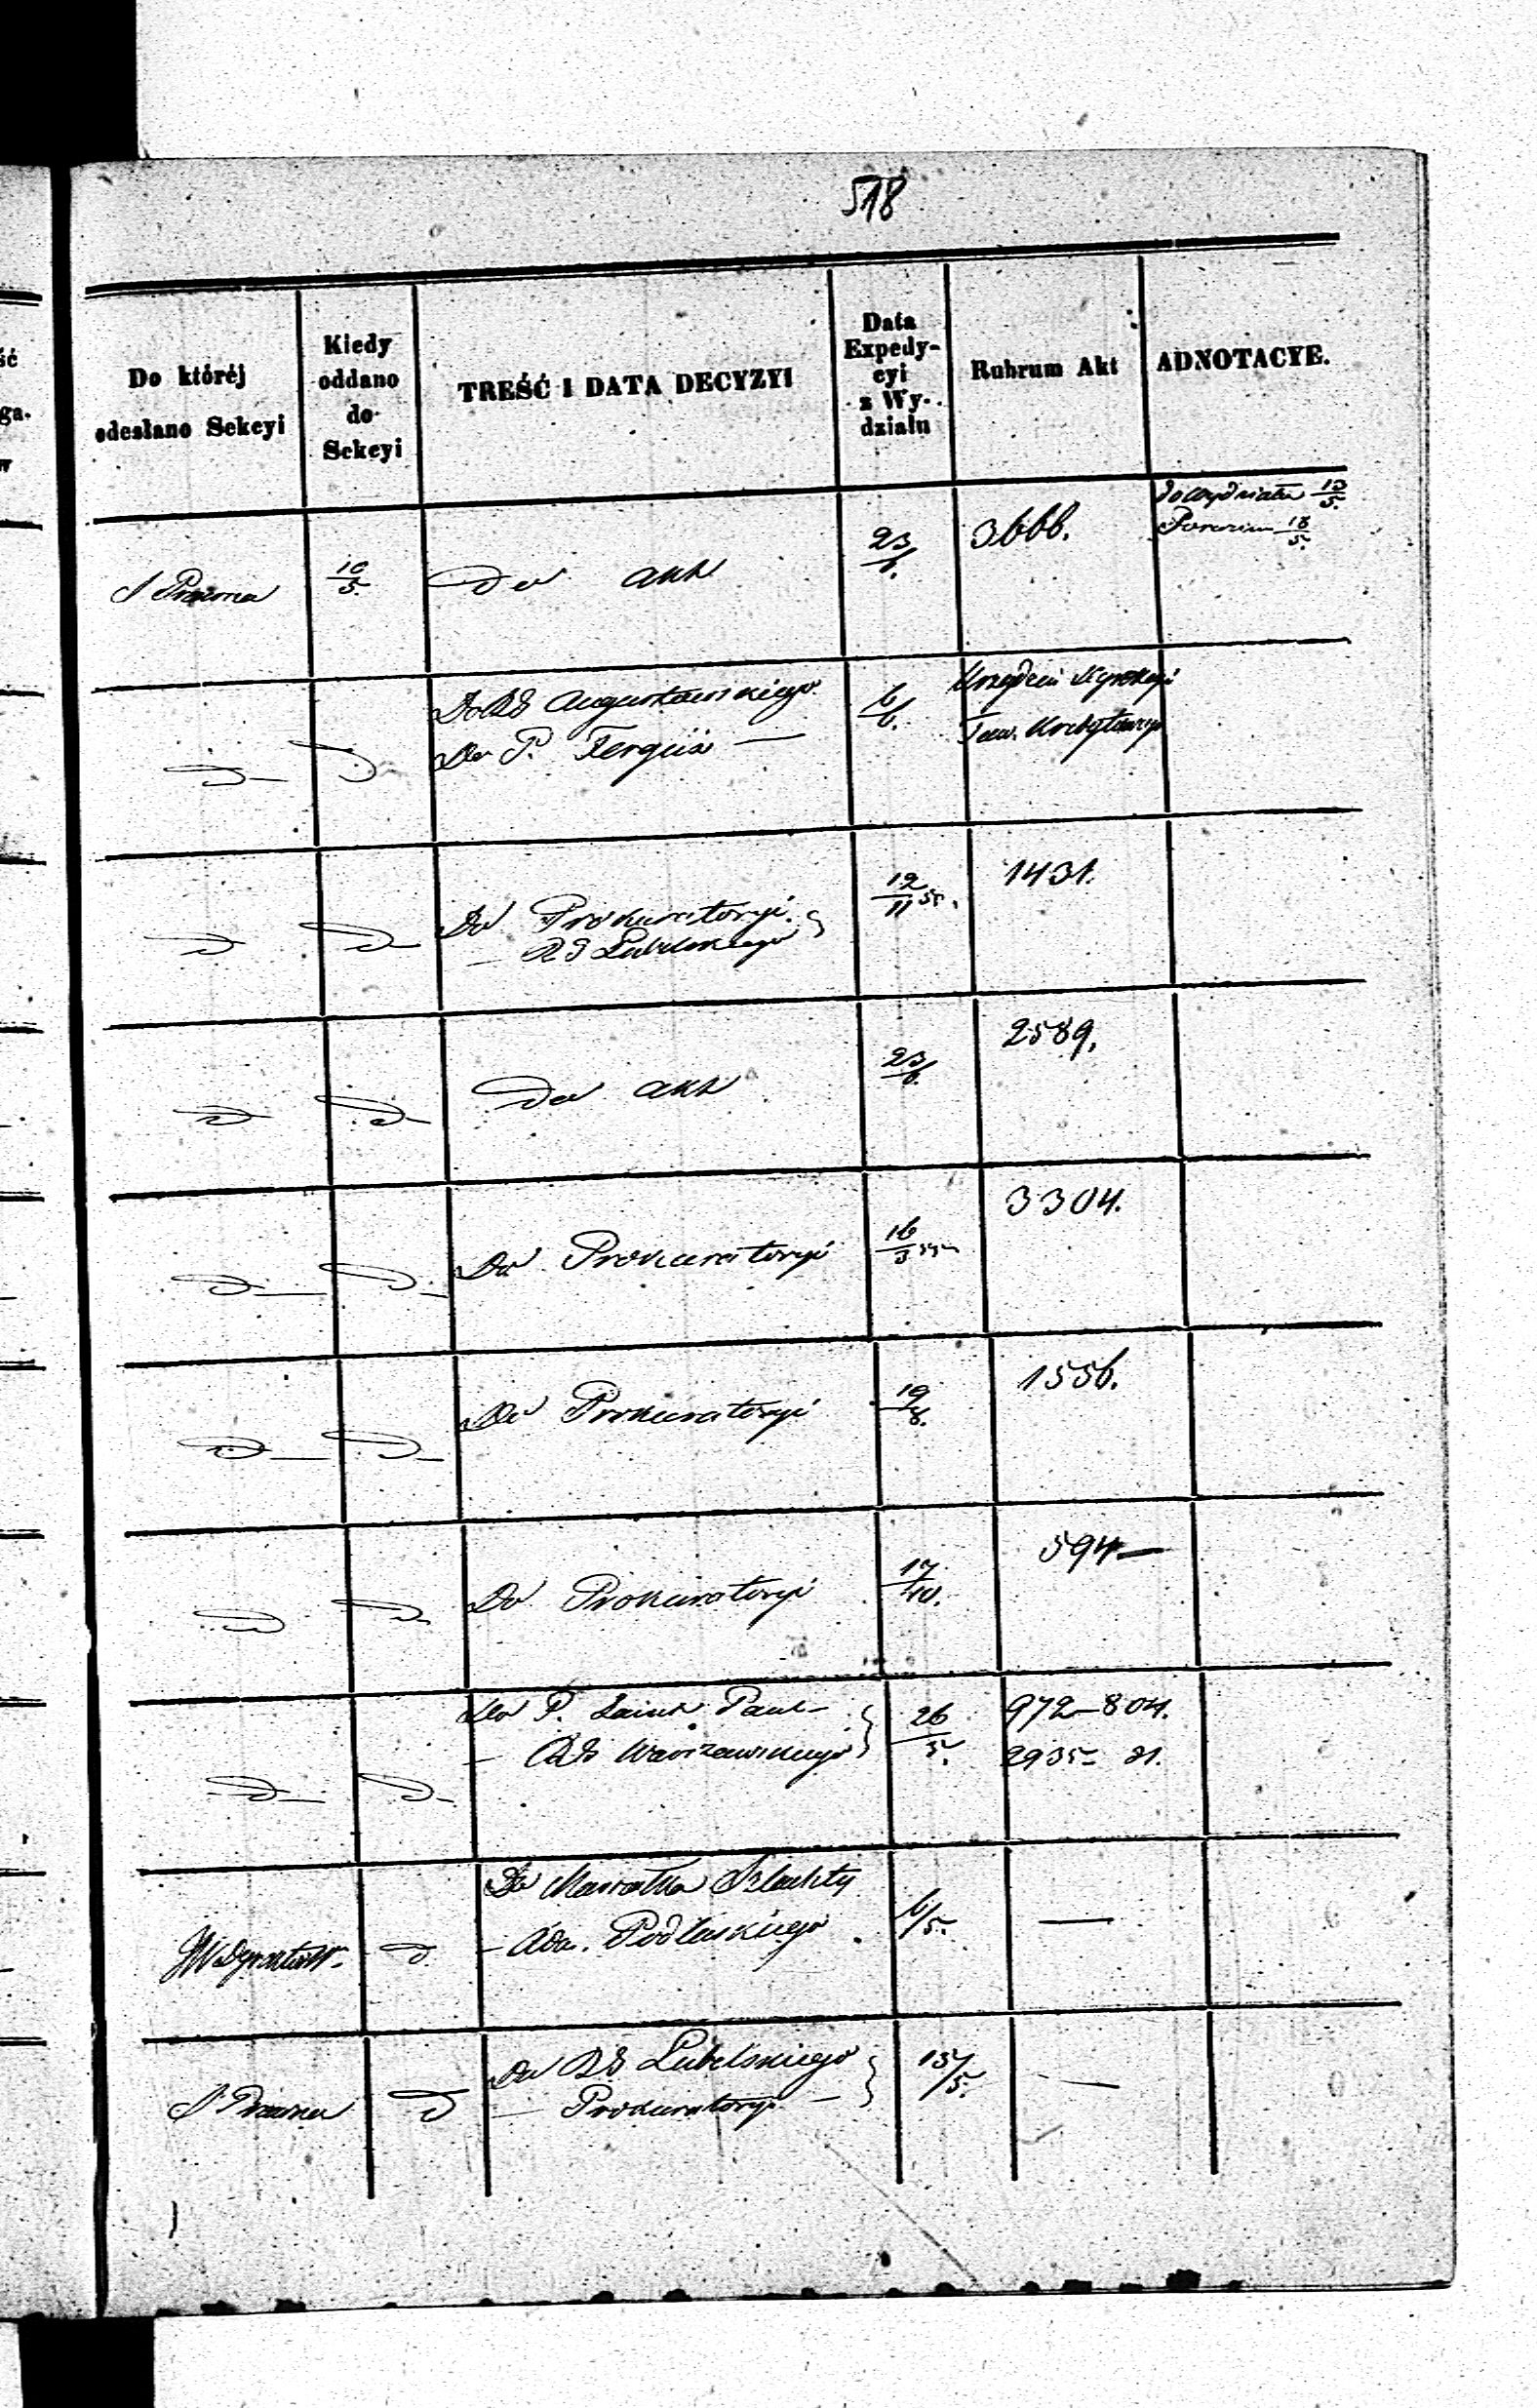 518
Do któréj odesłano Sekcyi
Kiedy oddano do Sekcyi
TREŚĆ I DATA DECYZYI
Data Expedycyi z Wydziału
Rubrum Akt
ADNOTACYE.
S Prawna
10/5.
Do akt
23/6.
3666.
do Wydziału 13/5.
18/5.
Do RG Augustowskiego
Do P.
6/6.
D
D
Do Prokuratoryi
— RG Lubelskiego
12/11 55.
1431.
D
D
Do akt
23/6.
2589.
D
D
Do Prokuratoryi
16/3
3304.
D
D
Do Prokuratoryi
19/8.
1556.
D
D
Do Prokuratoryi
17/10.
594—
D
D
Do P. Saint Paul—
— RG Warszawskiego
26/5.
972—804.
2935— 21.
D
D
Do Marszałka Szlachty
— Podlaskiego
6/5.
—
D
S Prawna
D
Do RG Lubelskiego
— Prokuratoryi —
13/5.
—